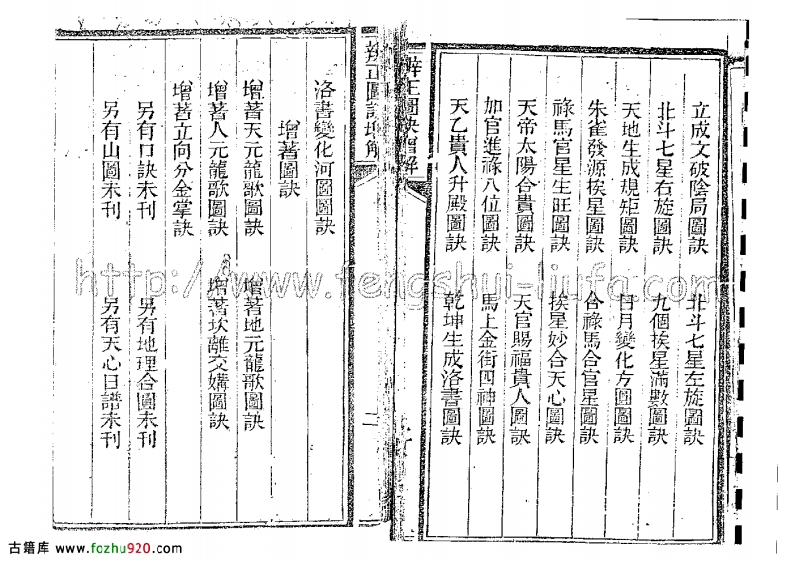 立成文破陰局圖訣　北斗七星左旋圖訣
北斗七星右旋圖訣　九個挨星滿數圖訣
天地生成規矩圖訣　日月變化方圓圖訣
朱雀發源挨星圖訣　合祿馬合官星圖訣
祿馬官星生旺圖訣　挨星妙合天心圖訣
天帝太陽合貴圖訣　天官賜福貴人圖訣
加官進祿八位圖訣　馬上金街四神圖訣
天乙貴人升殿圖訣　乾坤生成洛書圖訣
辨正圖訣增解
辨正圖訣增解
二
洛書變化河圖圖訣
增著圖訣
增著天元龍歌圖訣　增著地元龍歌圖訣
增著人元龍歌圖訣　增著坎離交媾圖訣
增著立向分金掌訣
另有口訣未刊　另有地理合圖未刊
另有山圖未刊　另有天心日譜未刊
http://www.fengshui-liufa.com
古籍库 www.fozhu920.com